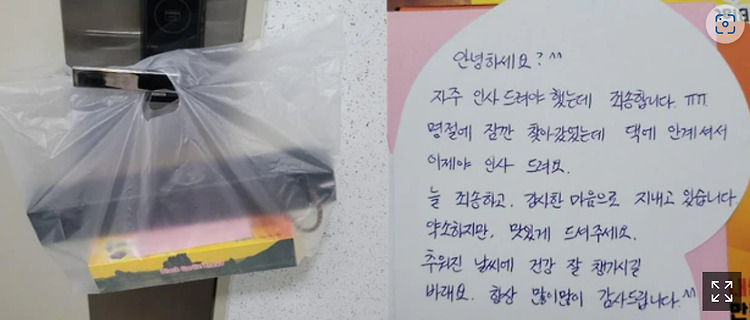 안녕하세요? ^^
자주 인사 드려야 했는데 죄송합니다. ㅠㅠ.
명절에 잠깐 찾아갔었는데 댁에 안계셔서
이제야 인사 드려요.
늘 죄송하고, 감사한 마음으로 지내고 있습니다.
약소하지만, 맛있게 드셔주세요.
추워진 날씨에 건강 잘 챙기시길
바래요. 항상 많이많이 감사드립니다.^^